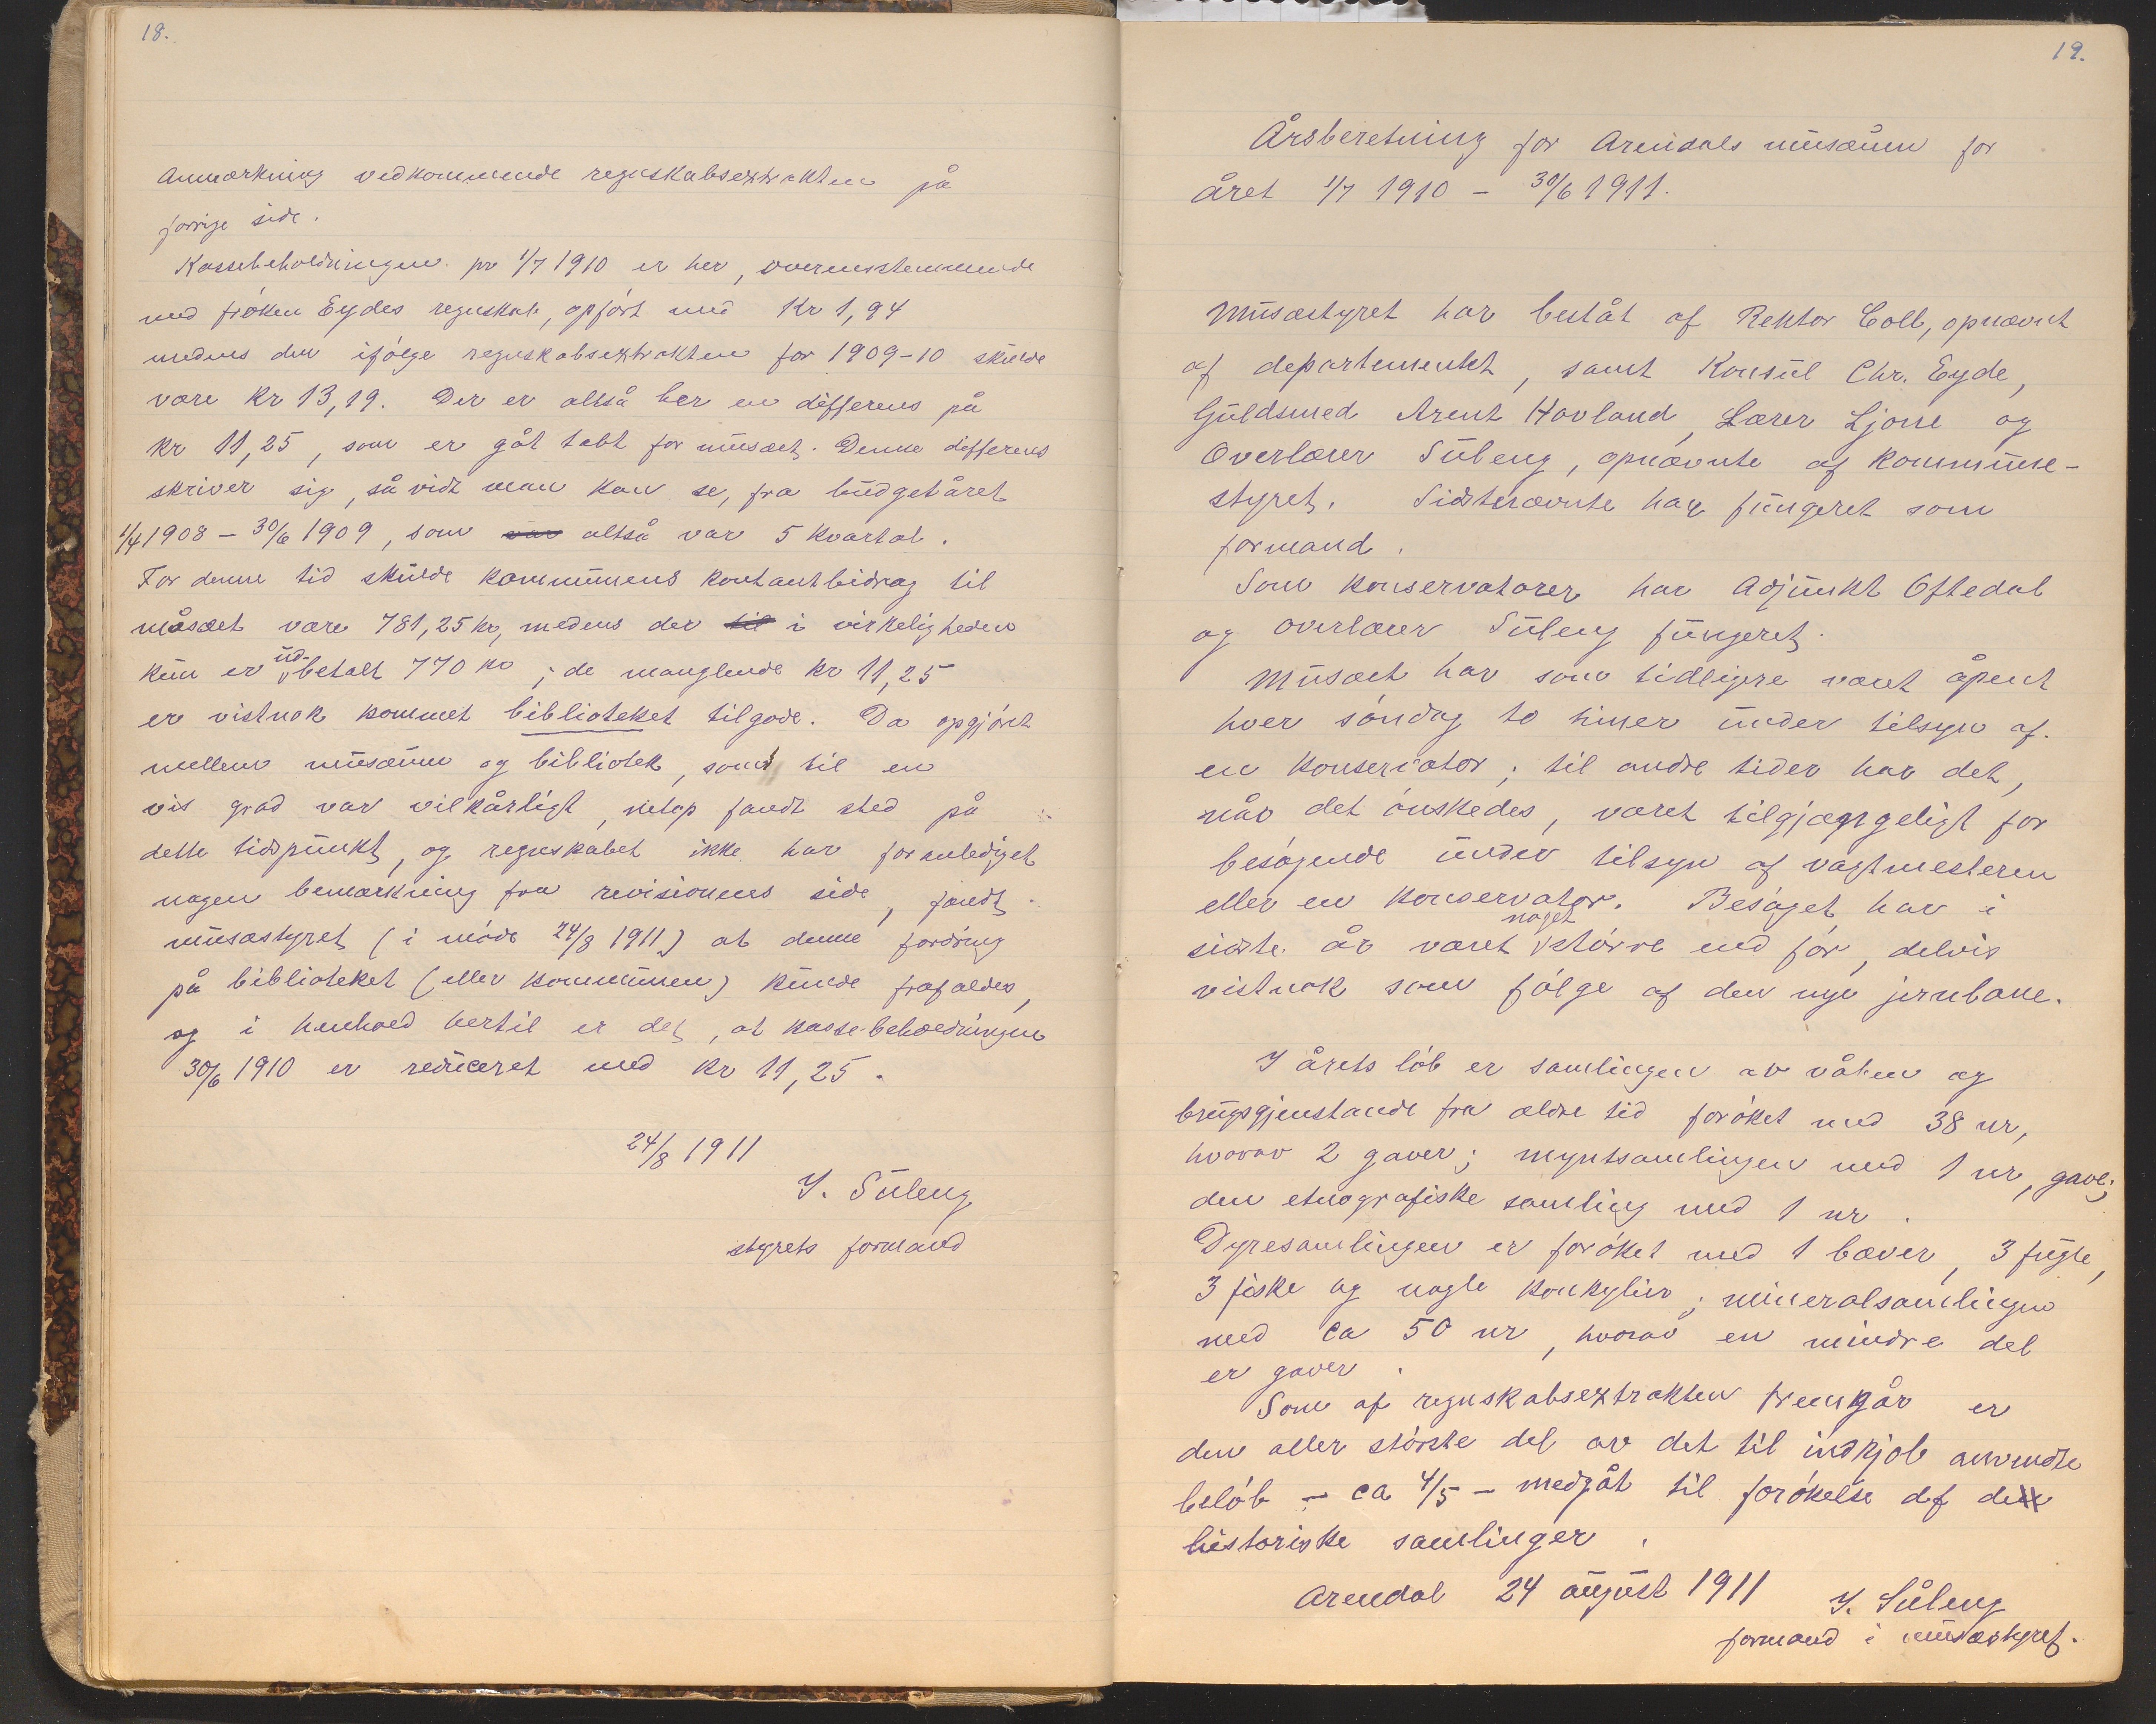 18.
Anmærkning vedkommende regnskabsextrakten på
forrige side.
Kassebeholdningen pr 1/7 1910 er her, overensstemmende
med frøken Eydes regnskab, opført med Kr 1,94
medens den ifølge regnskabsextrakten for 1909-10 skulde
være Kr 13,19. Der er altså her en differens på
Kr 11,25, som er gåt tabt for musæet. Denne differens
skriver sig, så vidt man kan se, fra budgetåret
1/4 1908 - 30/6 1909, som var altså var 5 kvartal.
For denne tid skulde kommunens kontantbidrag til
musæet være 781,25 kr, medens der til i virkeligheden
kun er ud-betalt 770 kr; de manglende kr 11,25
er vistnok kommet biblioteket tilgode. Da opgjøret
mellem musæum og bibliotek, som til en
vis grad var vilkårligt, netop fandt sted på
dette tidspunkt, og regnskabet ikke har foranlediget
nogen bemærkning fra revisionens side, fandt
musæstyret (i møde 24/8 1911) at denne fordring
på biblioteket (eller kommunen) kunde frafaldes,
og i henhold hertil er det, at kasse-beholdningen
30/6 1910 er reduceret med Kr 11,25.
24/8 1911
I. Suleng
styrets formand
19.
Årsberetning for Arendals musæum for
året 1/7 1910 - 30/6 1911.
Musæstyret har beståt af Rektor Coll, opnævnt
af departementet, samt Konsul Chr. Eyde,
Guldsmed Arent Hovland, Lærer Ljone og
Overlærer Suleng, opnævnte af Kommune-
styret. Sidstnævnte har fungeret som
formand.
Som konservatorer har Adjunkt Oftedal
og overlærer Suleng fungeret.
Musæet har som tidligere været åpent
hver søndag to timer under tilsyn af
en konservator; til andre tider har det,
når det ønskedes, været tilgjængeligt for
besøgende under tilsyn af vagtmesteren
eller en konservator. Besøget har i
sidste år været noget større end før, delvis
vistnok som følge af den nye jernbane.
I årets løb er samlingen av våben og
brugsgjenstande fra ældre tid forøket med 38 nr,
hvorav 2 gaver; myntsamlingen med 1 nr, gave;
den etnografiske samling med 1 nr.
Dyresamlingen er forøket med 1 bæver, 3 fugle,
3 fiske og nogle konkylier; mineralsamlingen
med ca 50 nr, hvorav en mindre del
er gaver.
Som af regnskabsextrakten fremgår er
den aller største del av det til indkjøb anvendte
beløb - ca 4/5 - medgåt til forøkelse af de
historiske samlinger.
Arendal 24 august 1911 I. Suleng
formand i musæstyret.